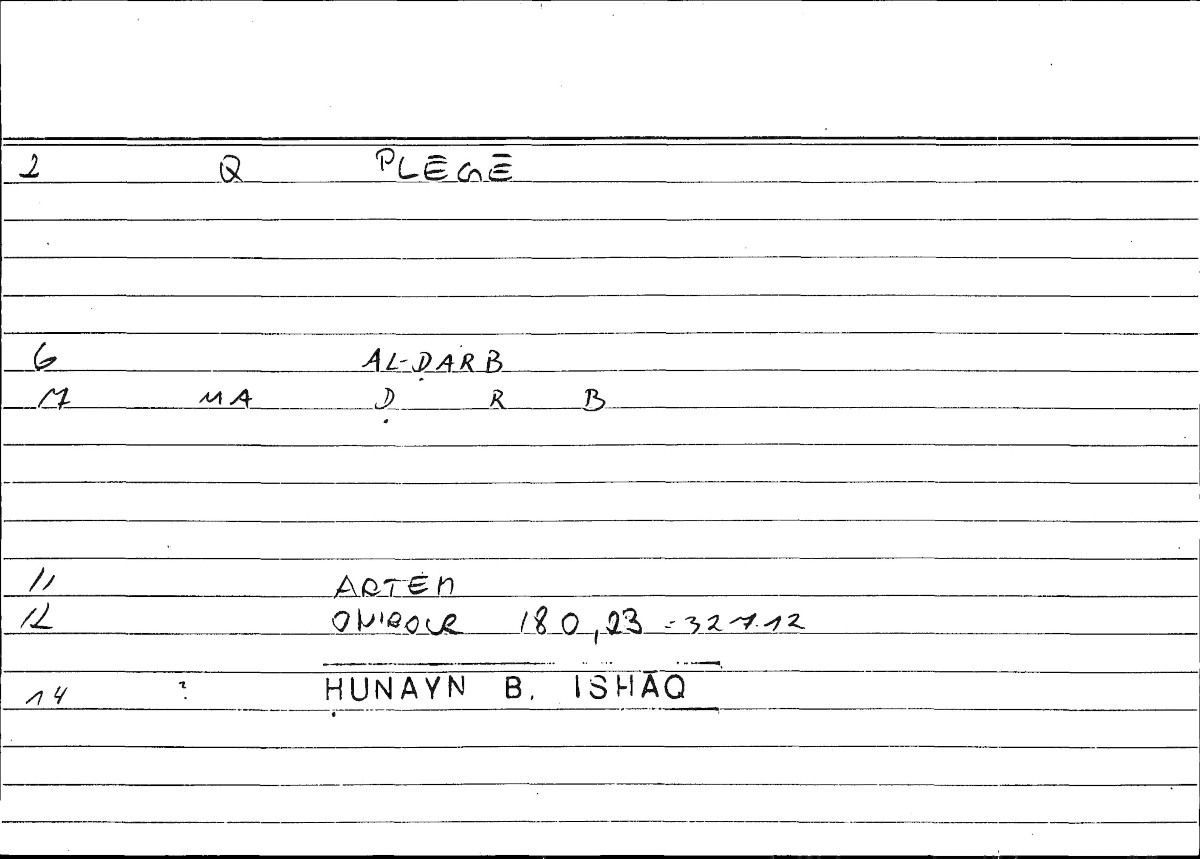 2 Q PLĒGĒ
6 AL-ḌARB
7 MA Ḍ R B
11 ARTEM
12 ONIROCR 180,23 = 327.12
14 ? ḤUNAYN B. ISHAQ